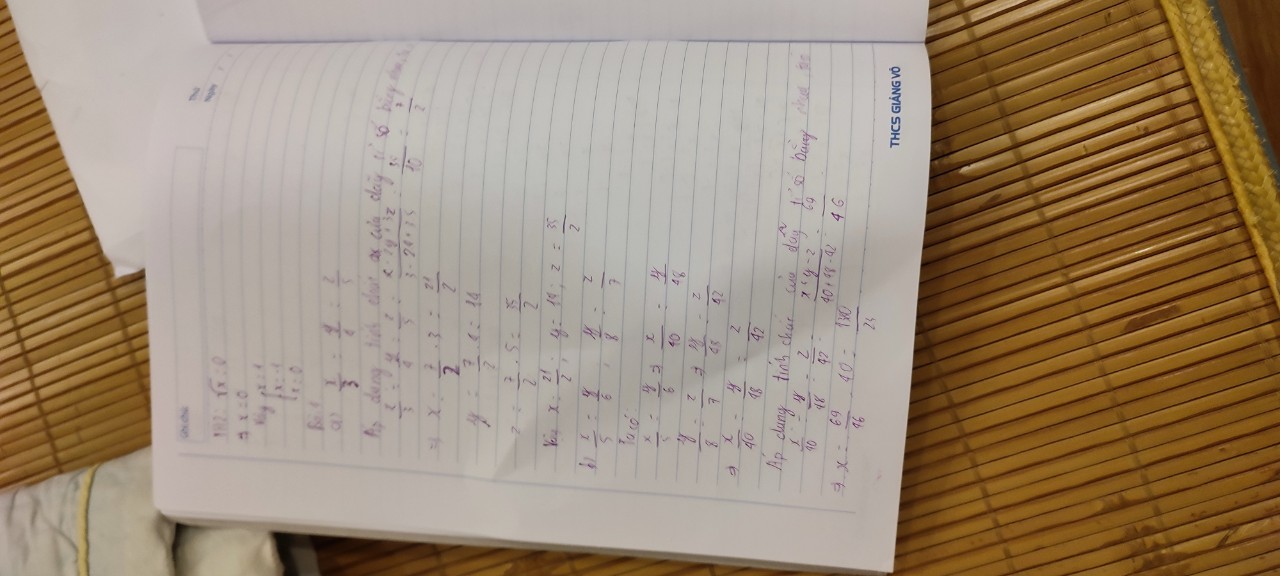 Thứ
Ngày
TH2: √x = 0
⇒ x = 0
Vậy [x = 1
[x = 0
Bài 1
a) x/3 = y/4 = z/5
Áp dụng tính chất của dãy tỉ số bằng nhau
x/3 = y/4 = z/5 = x - 2y + 3z / 3 - 2.4 + 3.5 = 35/10 = 7/2
⇒ x = 7/2 . 3 = 21/2
y = 7/2 . 4 = 14
z = 7/2 . 5 = 35/2
Vậy x = 21/2 ; y = 14 ; z = 35/2
b) x/5 = y/6 ; y/8 = z/7
Ta có
x/5 = y/6 ⇒ x/40 = y/48
y/8 = z/7 ⇒ y/48 = z/42
⇒ x/40 = y/48 = z/42
Áp dụng tính chất của dãy tỉ số bằng nhau
x/40 = y/48 = z/42 = x + y - z / 40 + 48 - 42 = 69/46
⇒ x = 69/46 . 40 =
THCS GIẢNG VÕ